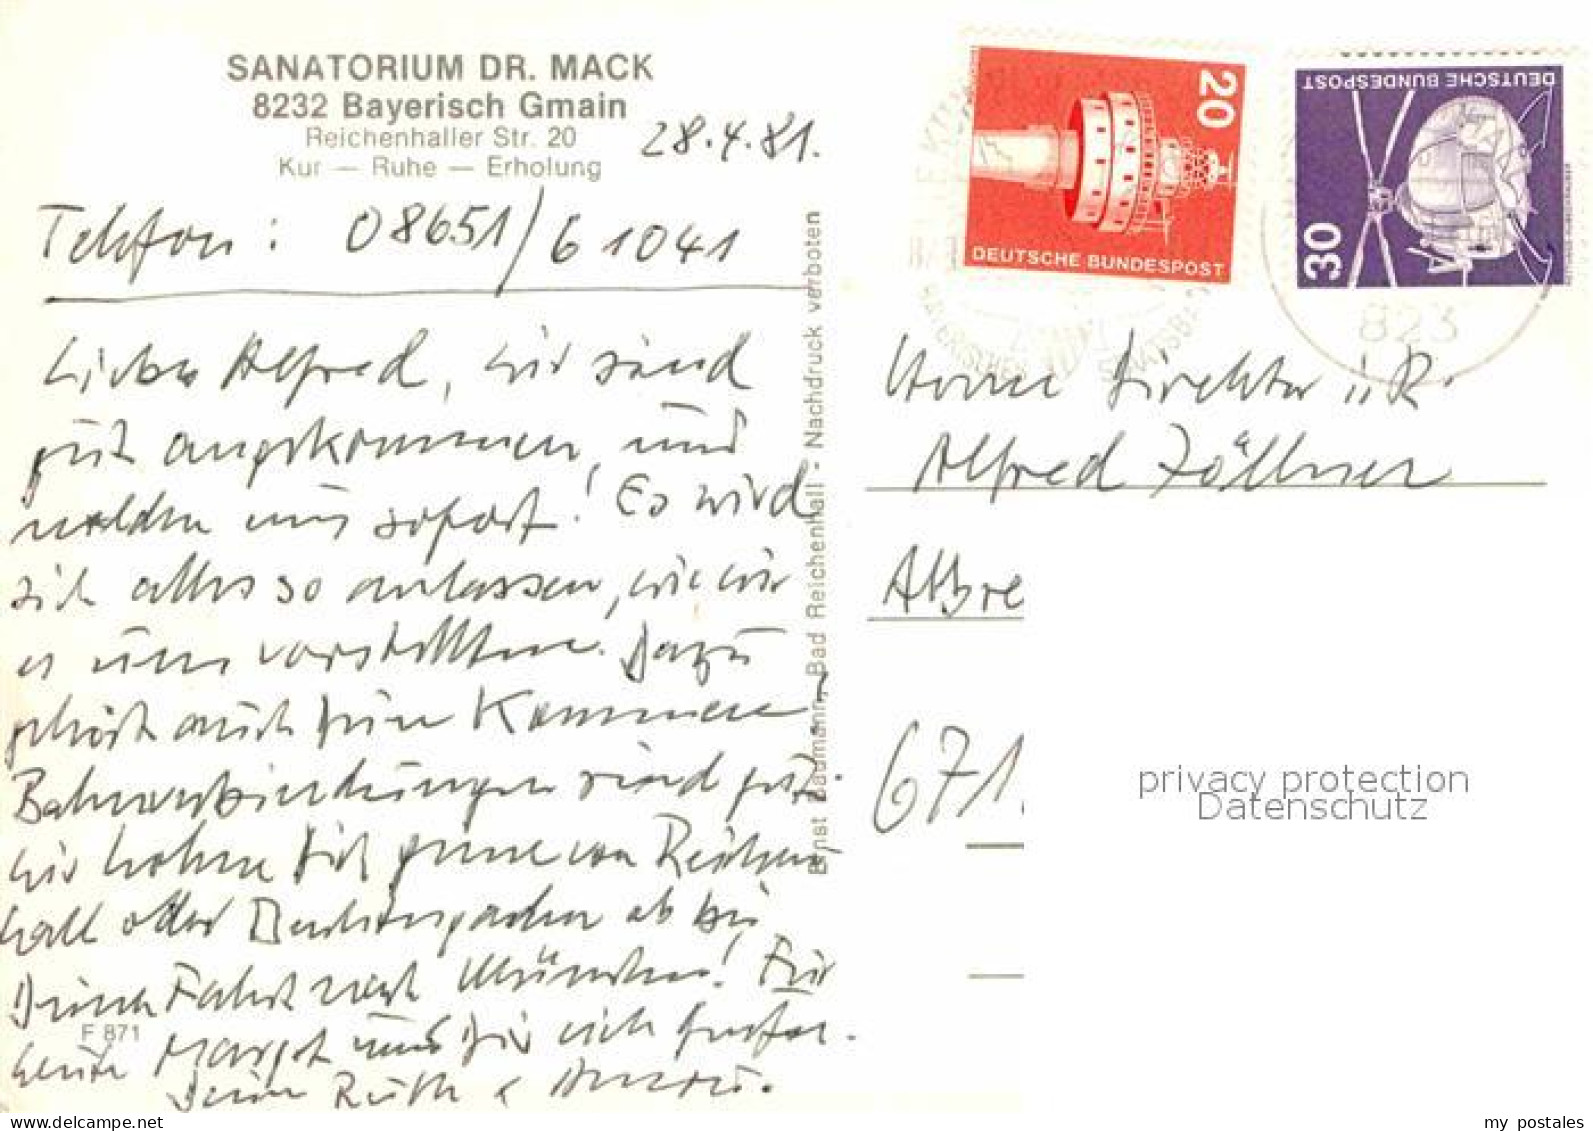 SANATORIUM DR. MACK
8232 Bayerisch Gmain
Reichenhaller Str. 20
Kur — Ruhe — Erholung
28.4.81.
Telefon: 08651/61041
Lieber Alfred, wir sind
gut angekommen, und
melden uns sofort! Es wird
sich alles so anlassen, wie wir
es uns vorstellten. Dazu
gehört auch Dein Kommen!
Bahnverbindungen sind gut.
Wir holen Dich gerne von Reichen
hall oder Berchtesgaden ab bei
Deiner Fahrt nach München! Für
heute Margot und Dir viel
Deine Ruth &
F 871
Ernst Baumann, Bad Reichenhall - Nachdruck verboten
20
DEUTSCHE BUNDESPOST
30
DEUTSCHE BUNDESPOST
823
BAYERISCHES STAATSBAD
Herrn Direktor i.R.
Alfred Zöllner
671
privacy protection
Datenschutz
my postales
www.delcampe.net